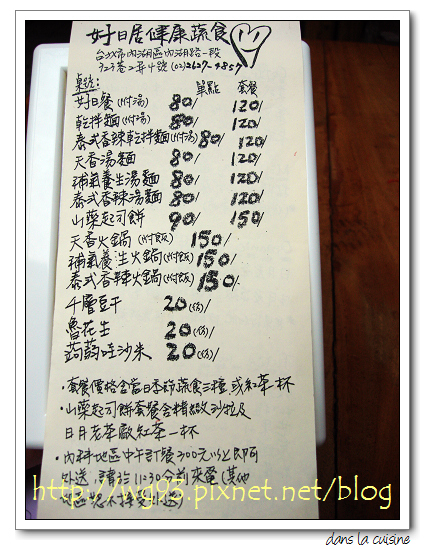 好日居健康蔬食
台北市內湖區內湖路一段
弄4號 (02)2627-4859
桌號: 單點 套餐
好日餐(附湯) 80/ 120/
乾拌麵(附湯) 80/ 120/
泰式香辣乾拌麵(附湯) 80/ 120/
天香湯麵 80/ 120/
補氣養生湯麵 80/ 120/
泰式香辣湯麵 80/ 120/
山藥起司餅 90/ 150/
天香火鍋(附飯) 150/
補氣養生火鍋(附飯) 150/
泰式香辣火鍋(附飯) 150/
千層豆干 20(份)
魯花生 20(份)
蒟蒻哇沙米 20(份)
·套餐價格含當日季節蔬食三種,或紅茶一杯
·山藥起司餅套餐含精緻沙拉及
日月老茶廠紅茶一杯
·內科地區中午訂餐300元以上即可
外送,請於11:30分前來電(其他
地區恕不接受外送)
http://wg93.pixnet.net/blog
dans la cuisine